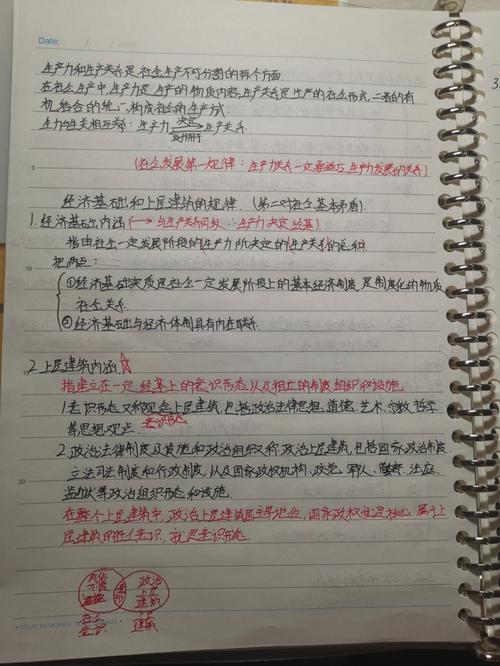 Date:
生产力和生产关系是社会生产不可分割的两个方面
在社会生产中,生产力是生产的物质内容,生产关系是生产的社会形式,二者的有
机结合的统一,构成社会的生产方式.
生力与生关相互关系:生产力 决定 生产关系.
反作用于
(社会发展第一规律:生产关系一定要适应生产力发展的关系)
5
经济基础和上层建筑的规律.(第二对社会基本矛盾)
1.经济基础内涵(→与生产关系同级∴生产力决定经基)
指由社会一定发展阶段的生产力所决定的生产关系的总和.
10
把两点:
①经济基础实质是社会一定发展阶段上的基本经济制度,是制度化的物质
社会关系.
②经济基础与经济体制具有内在联系.
2.上层建筑内涵☆
15
指建立在一定经基上的意识形态以及相应的制度组织和设施.
1.意识形态又称观念上层建筑,包括政治法律思想、道德、艺术、宗教、哲学
等思想观点.意识形态
2.政治法律制度及设施和政治组织又称政治上层建筑,包括国家政治制度
立法司法制度和行政制度,以及国家政权机构、政党、军队、警察、法庭、
20
监狱等政治组织形态和设施.
在整个上层建筑中,政治上层建筑居主导地位,国家政权是核心.属于上
层建筑的社会意识,就是意识形态.
政治
上层
建筑
社会
意识
上层
建筑
• YOUR MEMORIES